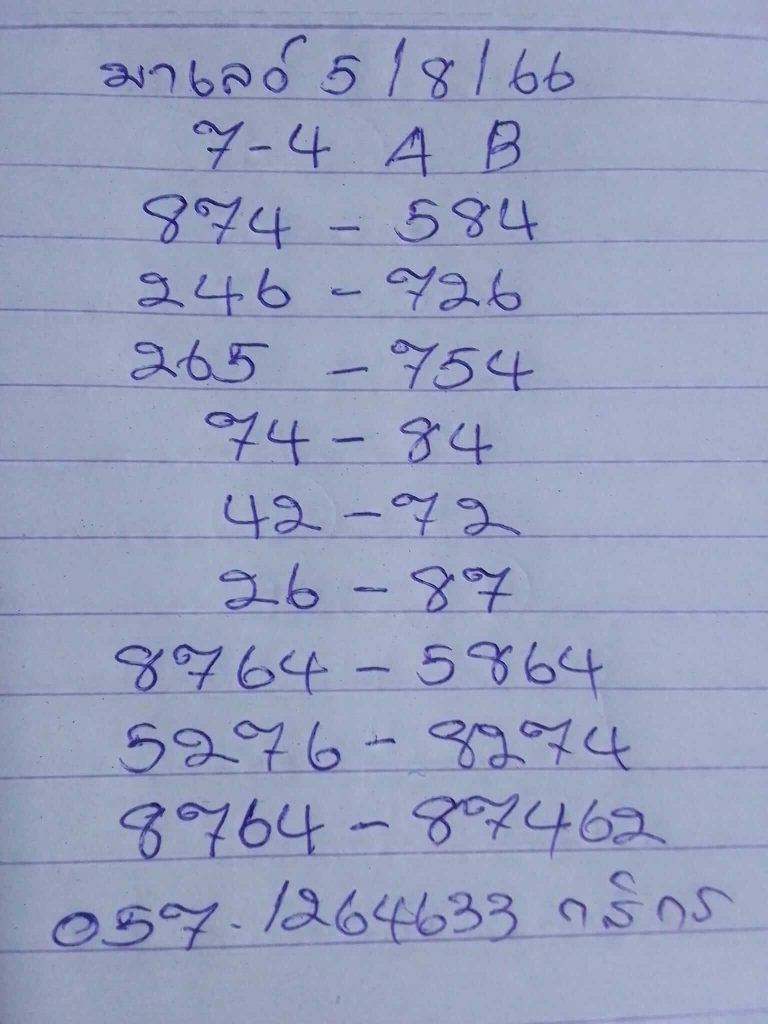 มาเลย์ 5/8/66
7-4 A B
874 - 584
246 - 726
265 - 754
74 - 84
42 - 72
26 - 87
8764 - 5864
5276 - 8274
8764 - 87462
057-1264633 กสิกร